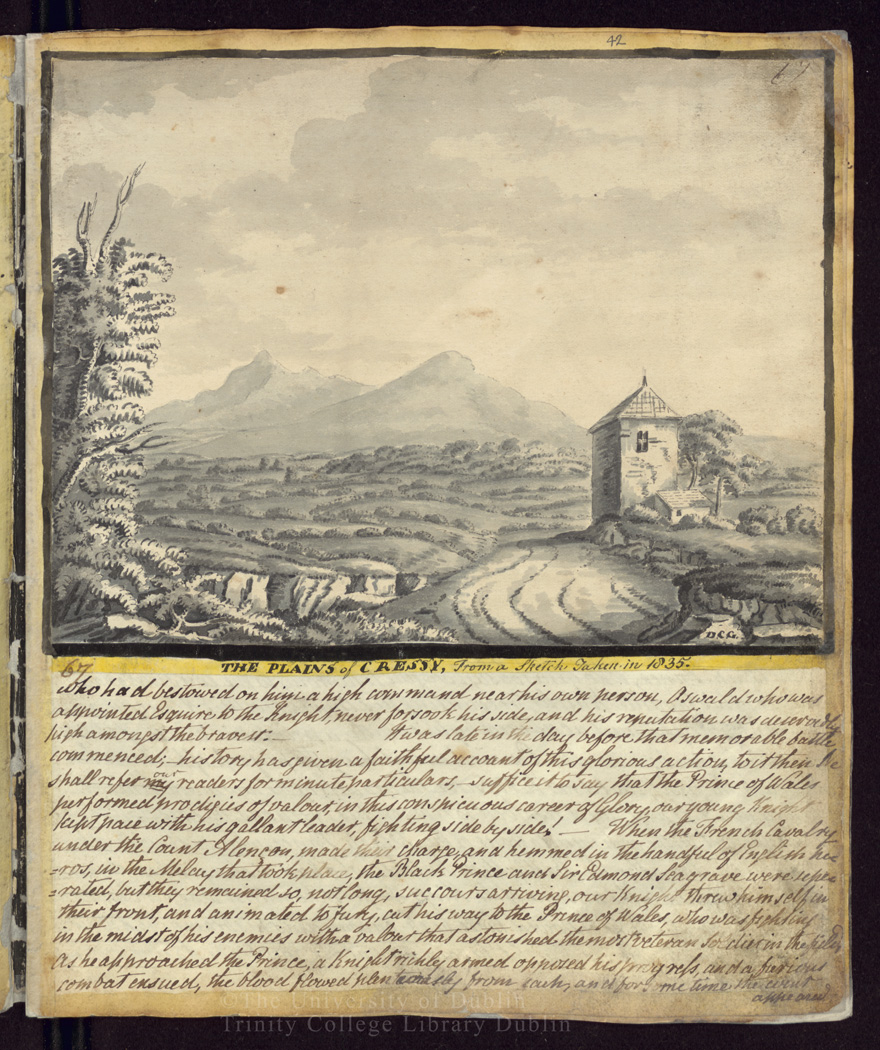 42
67
D.C.G.
THE PLAINS of CRESSY, From a Sketch Taken in 1835.
67
who had bestowed on him a high command near his own person, Oswald who was
appointed Esquire to the Knight, never forsook his side, and his reputation was deservedly
high amongst the bravest:— It was late in the day before that memorable battle
commenced;— history has given a faithful account of this glorious action, to it then We
shall refer our my readers for minute particulars,— suffice it to say that the Prince of Wales
performed prodigies of valour in this conspicuous career of Glory, our young Knight
kept pace with his gallant leader, fighting side by side!— When the French Cavalry
under the Count Alençon, made their charge, and hemmed in the handful of English he-
=ros, in the Melay that took place, the Black Prince and Sir Edmond Seagrave were sepe-
=rated, but they remained so, not long, succours arriving, our Knight threw himself in
their front, and animated to fury, cut his way to the Prince of Wales, who was fighting
in the midst of his enemies with a valour that astonished the most veteran Soldier in the field,
As he approached the Prince, a Knight richly armed opposed his progress, and a furious
combat ensued, the blood flowed plenteously from each, and for some time the event
appeared
© The University of Dublin
Trinity College Library Dublin